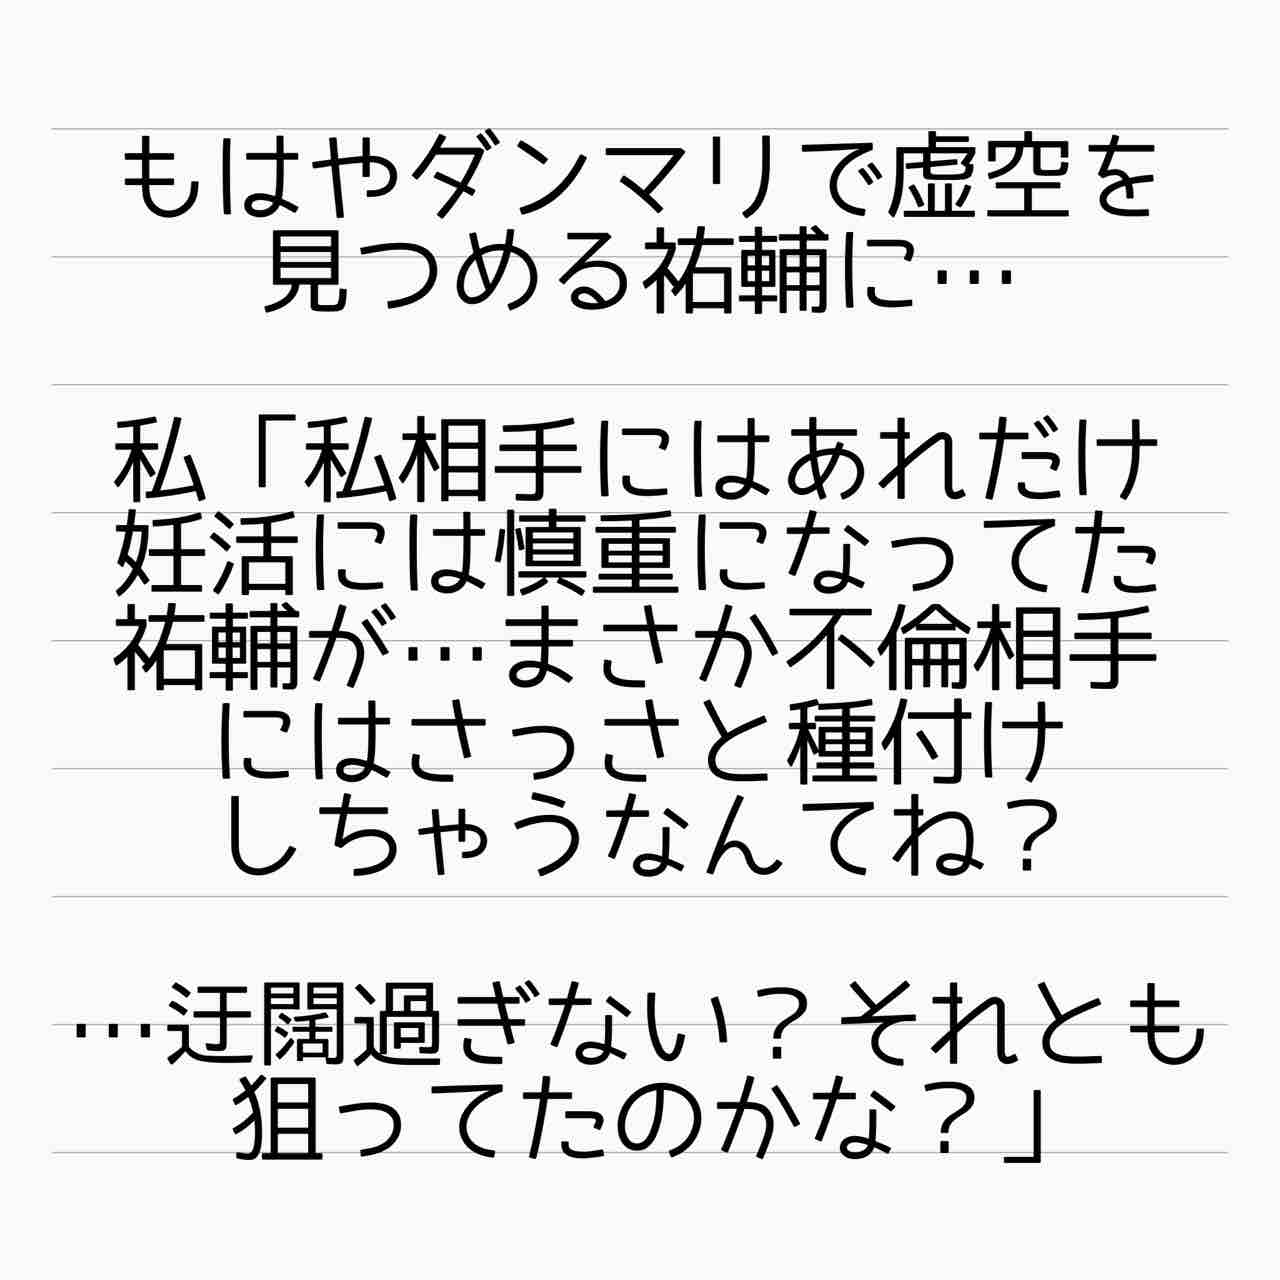 もはやダンマリで虚空を
見つめる祐輔に…
私「私相手にはあれだけ
妊活には慎重になってた
祐輔が…まさか不倫相手
にはさっさと種付け
しちゃうなんてね？
…迂闊過ぎない？それとも
狙ってたのかな？」